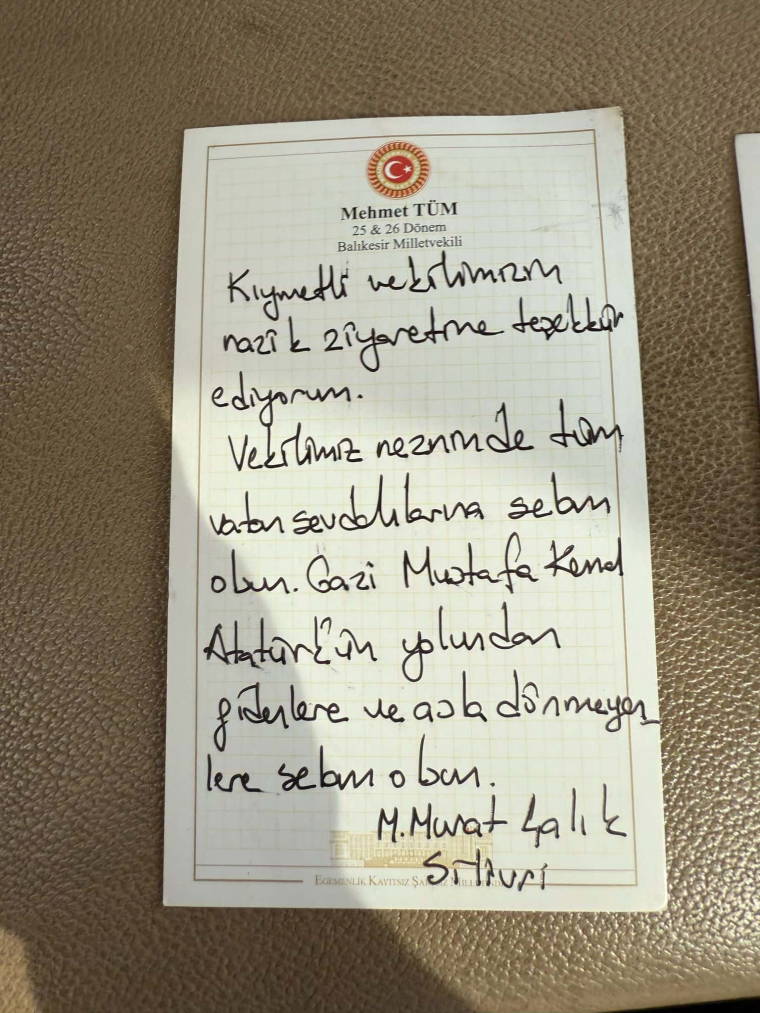 Mehmet TÜM
25 & 26 Dönem
Balıkesir Milletvekili
Kıymetli vekilimizin
nazik ziyaretine teşekkür
ediyorum.
Vekilimiz nezninde tüm
vatan sevdalılarına selam
olsun. Gazi Mustafa Kemal
Atatürk'ün yolundan
gidenlere ve asla dönmeyen
lere selam olsun.
M. Murat Çalık
Silivri
EGEMENLİK KAYITSIZ ŞARTSIZ MİLLETİNDİR